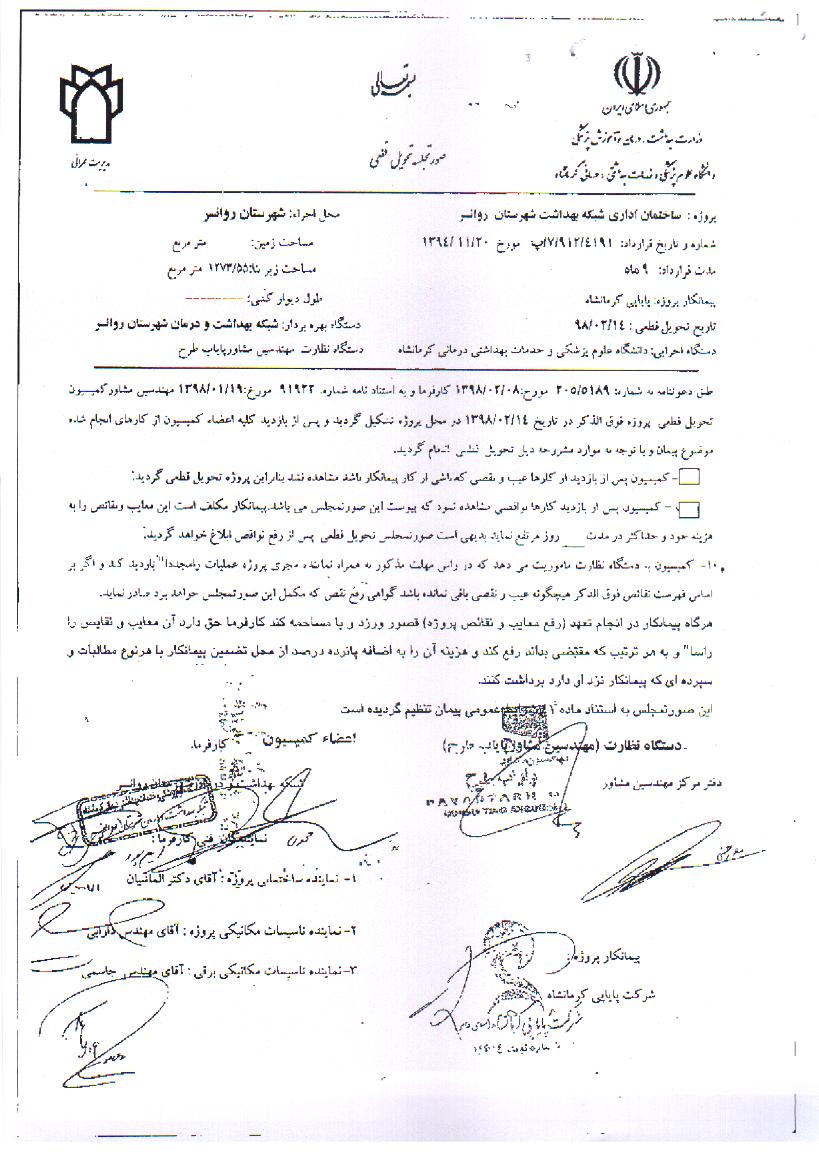 بسمه تعالی
جمهوری اسلامی ایران
وزارت بهداشت، درمان و آموزش پزشکی
دانشگاه علوم پزشکی و خدمات بهداشتی، درمانی کرمانشاه
مدیریت عمرانی
صورتجلسه تحویل قطعی
پروژه : ساختمان اداری شبکه بهداشت شهرستان روانسر
محل اجراء: شهرستان روانسر
شماره و تاریخ قرارداد: ۷/۹۱۲/۴۱۹۱/پ مورخ ۱۳۹۴/۱۱/۲۰
مساحت زمین: متر مربع
مدت قرارداد: ۹ ماه
مساحت زیر بنا: ۱۲۷۳/۵۵ متر مربع
پیمانکار پروژه: پایابی کرمانشاه
طول دیوار کشی: ----------
تاریخ تحویل قطعی : ۹۸/۰۲/۱۴
دستگاه بهره بردار: شبکه بهداشت و درمان شهرستان روانسر
دستگاه اجرایی: دانشگاه علوم پزشکی و خدمات بهداشتی درمانی کرمانشاه
دستگاه نظارت مهندسین مشاور پایاب طرح
طق دعوتنامه به شماره: ۲۰۵/۵۱۸۹ مورخ: ۱۳۹۸/۰۲/۰۸ کارفرما و به استناد نامه شماره. ۹۱۹۲۲ مورخ: ۱۳۹۸/۰۱/۱۹ مهندسین مشاور کمیسیون
تحویل قطعی پروژه فوق الذکر در تاریخ ۱۳۹۸/۰۲/۱۴ در محل پروژه تشکیل گردید و پس از بازدید کلیه اعضاء کمیسیون از کارهای انجام شده
موضوع پیمان و با توجه به موارد مشروحه ذیل تحویل قطعی انجام گردید.
- کمیسیون پس از بازدید از کارها عیب و نقصی که ناشی از کار پیمانکار باشد مشاهده نشد بنابراین پروژه تحویل قطعی گردید:
- کمیسیون پس از بازدید کارها نواقصی مشاهده نمود که پیوست این صورتمجلس می باشد.پیمانکار مکلف است این معایب ونقائص را به
هزینه خود و حداکثر در مدت ____ روز مرتفع نماید بدیهی است صورتمجلس تحویل قطعی پس از رفع نواقص ابلاغ خواهد گردید:
۱۰- کمیسیون به دستگاه نظارت ماموریت می دهد که در راس مهلت مذکور به همراه نماینده مجری پروژه عملیات را مجددا" بازدید کند و اگر بر
اساس فهرست نقائص فوق الذکر هیچگونه عیب و نقصی باقی نمانده باشد گواهی رفع نقص که مکمل این صورتمجلس خواهد بود صادر نماید.
هرگاه پیمانکار در انجام تعهد (رفع معایب و نقائص پروژه) قصور ورزد و یا مسامحه کند کارفرما حق دارد آن معایب و نقایص را
راسا" و به هر ترتیب که مقتضی بداند رفع کند و هزینه آن را به اضافه پانزده درصد از محل تضمین پیمانکار یا هرنوع مطالبات و
سپرده ای که پیمانکار نزد او دارد برداشت کند.
این صورتمجلس به استناد ماده عمومی پیمان تنظیم گردیده است
دستگاه نظارت (مهندسین مشاور پایاب طرح)
اعضاء کمیسیون
کارفرما
دفتر مرکز مهندسین مشاور
شبکه بهداشت و درمان روانسر
نمایندگان فنی کارفرما :
۱- نماینده ساختمانی پروژه : آقای دکتر الماسیان
۲- نماینده تاسیسات مکانیکی پروژه : آقای مهندس دارابی
۳- نماینده تاسیسات مکانیکی برقی : آقای مهندس جاسمی
پیمانکار پروژه :
شرکت پایابی کرمانشاه